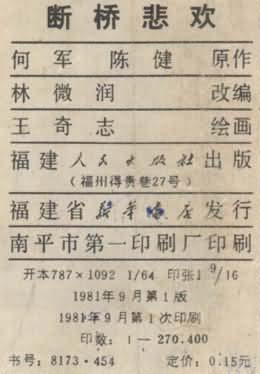 断桥悲欢
何军 陈健 原作
林微润 改编
王奇志 绘画
福建人民出版社出版
(福州得贵巷27号)
福建省新华书店发行
南平市第一印刷厂印刷
开本787×1092 1/64 印张1 9/16
1981年9月第1版
1981年9月第1次印刷
印数:1—270.400
书号:8173·454 定价:0.15元